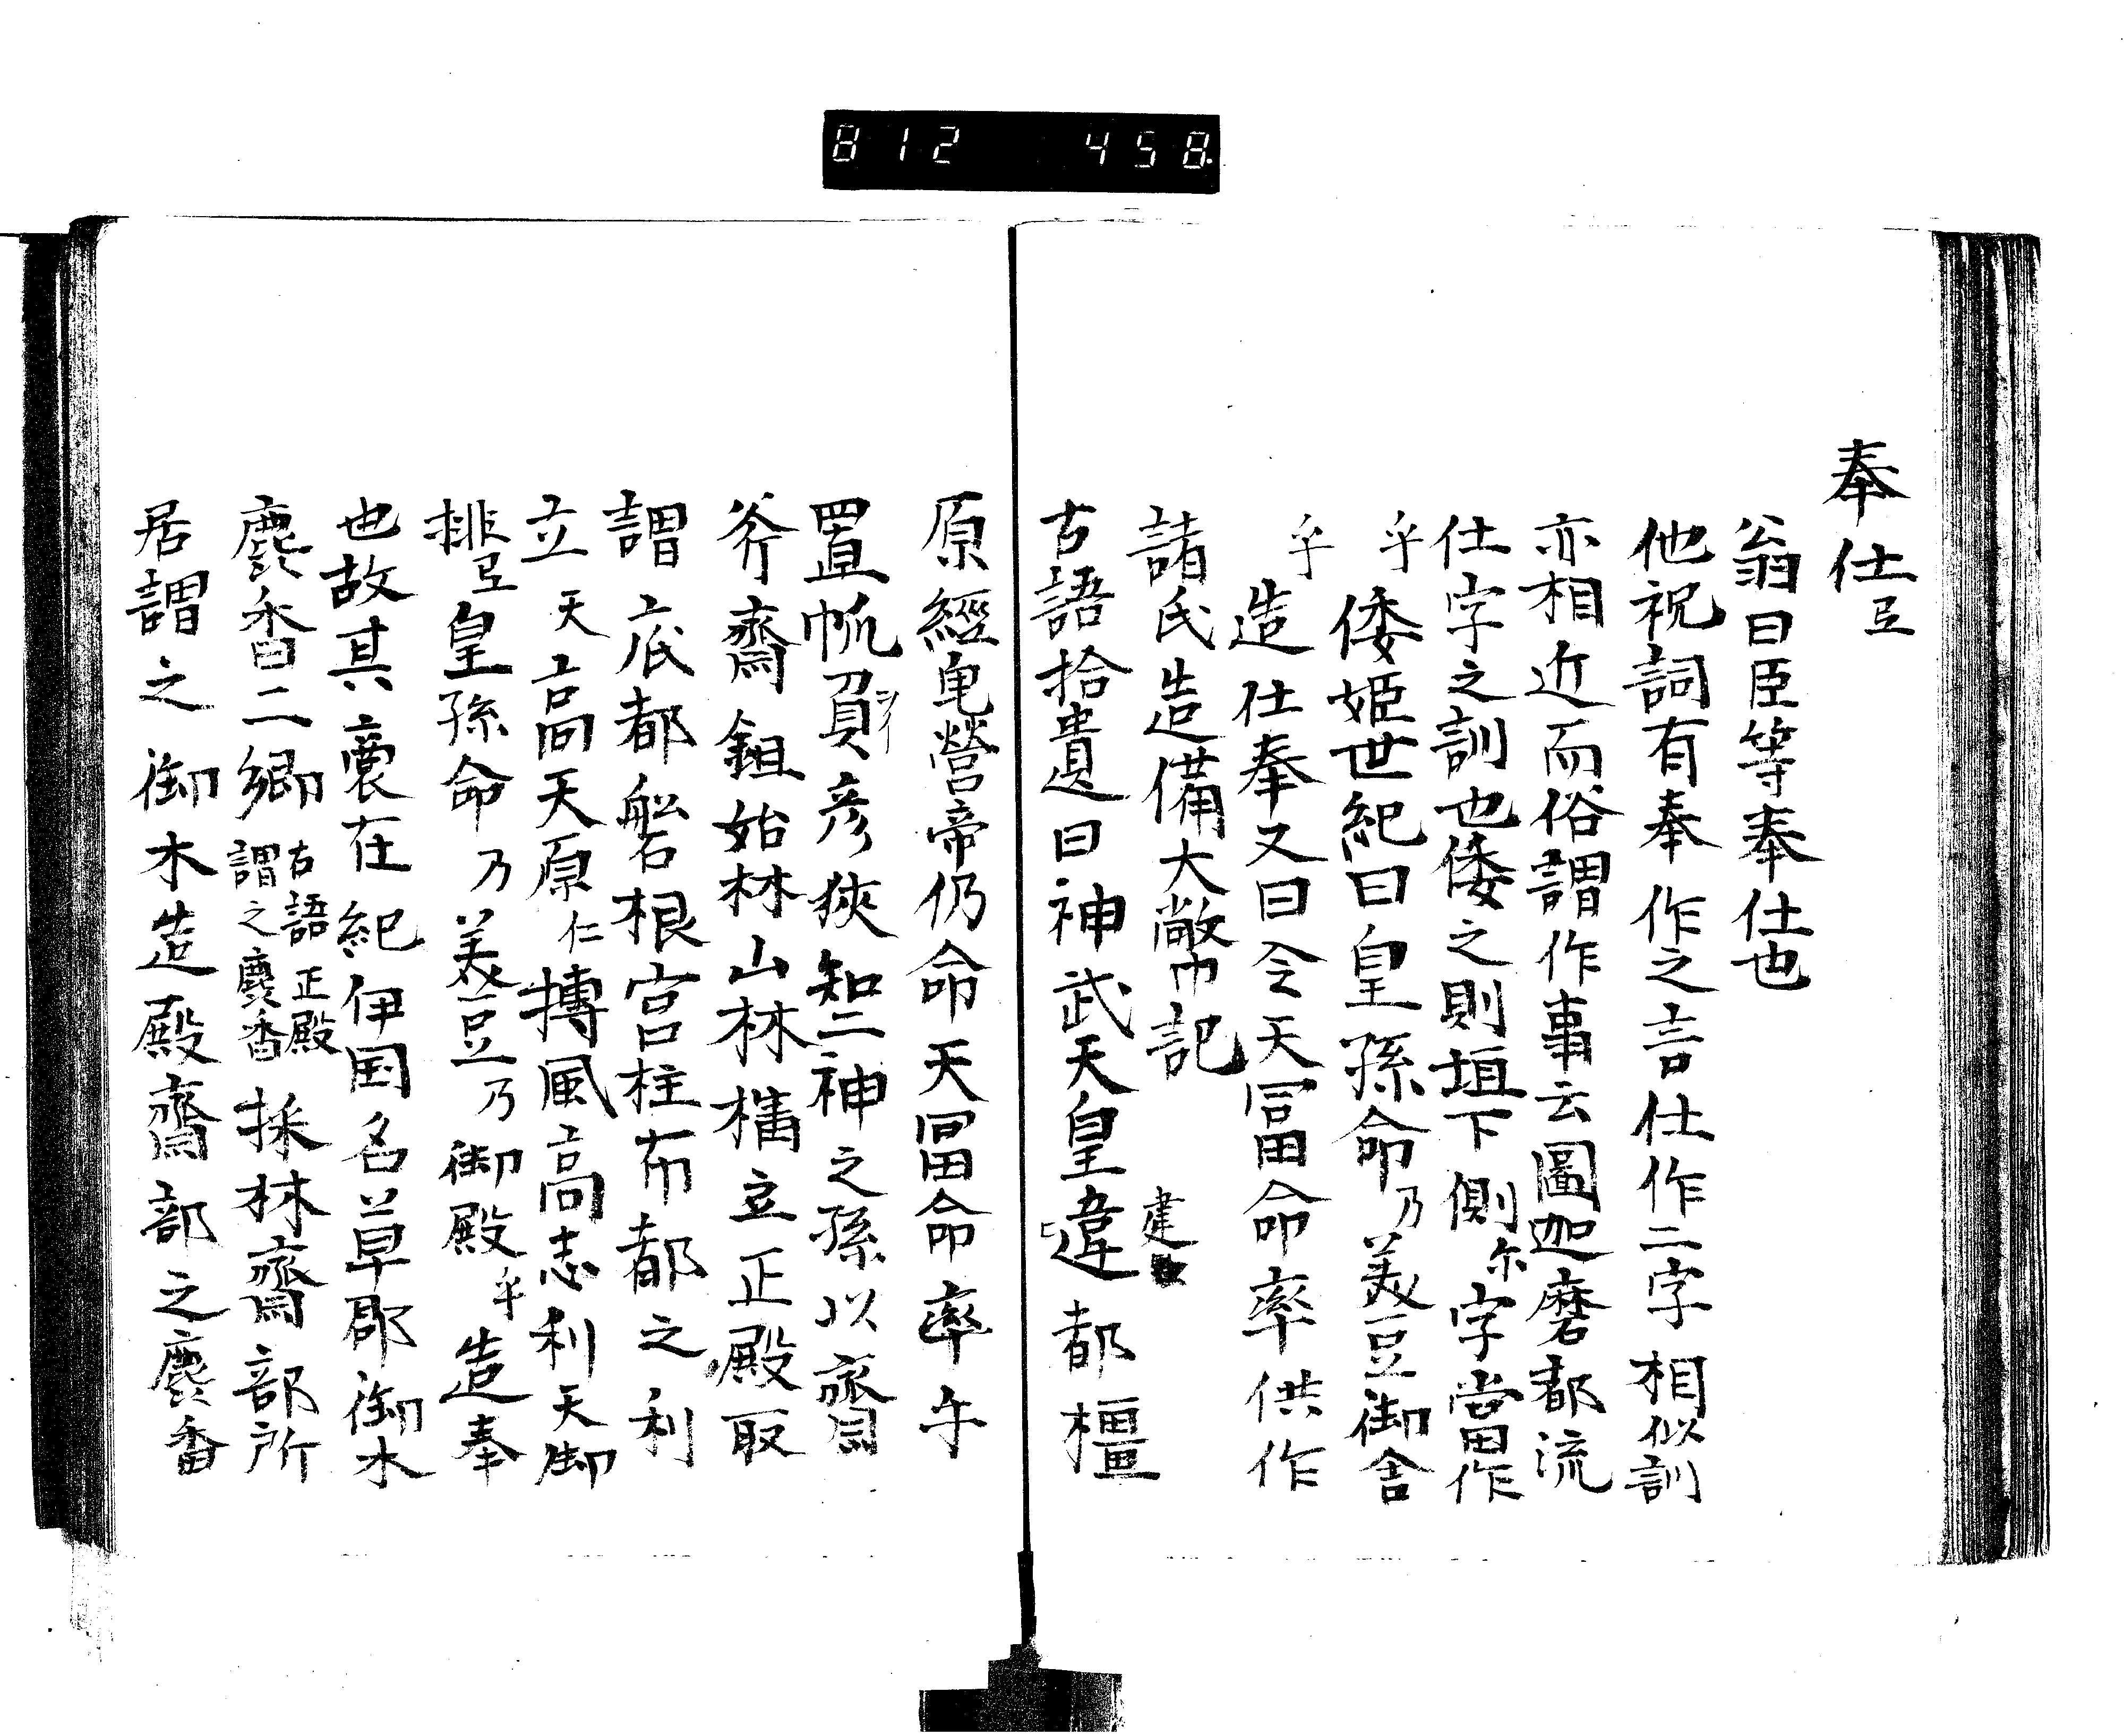 812 458
奉仕弖
翁曰臣等奉仕也
他祝詞有奉作之言仕作二字相似訓
亦相近而俗謂作事云圖迦磨都流
仕字之訓也倭之則垣下側尓字當作
乎倭姫世紀曰皇孫命乃美豆御舍
乎造仕奉又曰令天冨命率供作
諸氏造備大幣記
古語拾遺曰神武天皇建違都橿
原經電營帝仍命天冨命率乍
置帆負彦狹知二神之孫以齋
斧齋鉏始林山林構立正殿取
謂底都磐根宮柱布都之利
立天高天原仁摶風高志利天御
排弖皇孫命乃美豆乃御殿乎造奉
也故其裔在紀伊国名草郡御木
麁香二郷古語正殿謂之麁香採林齋部所
居謂之御木造殿齋部之麁香